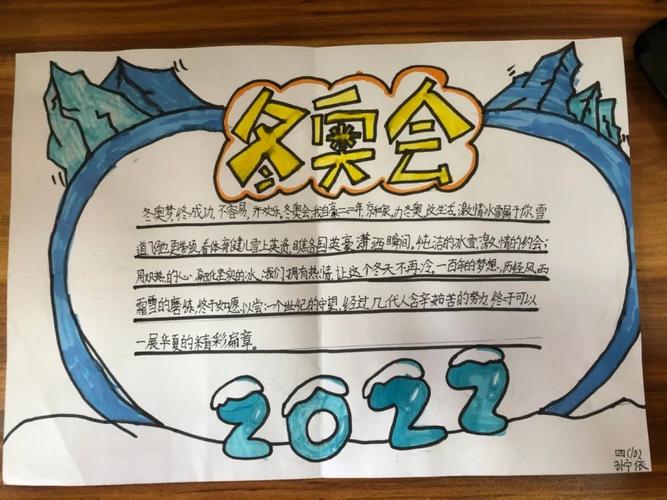 冬奥会
冬奥梦,终成功,不容易,齐欢乐。冬奥会,我自豪,二二年,京和家,办冬奥,改生活,激情冰雪属于你,雪
道飞驰更带领,看体育健儿雪上英勇,瞧各国英豪潇洒瞬间,纯洁的冰雪,激情的约会;
用火热的心 融化坚实的冰,我们拥有热情,让这个冬天不再冷,一百年的梦想,历经风雨
霜雪的磨练,终于如愿以尝;一个世纪的守望,经过几代人含辛茹苦的努力,终于可以
一展华夏的精彩扁章。
2022
四(10)
孙宁依